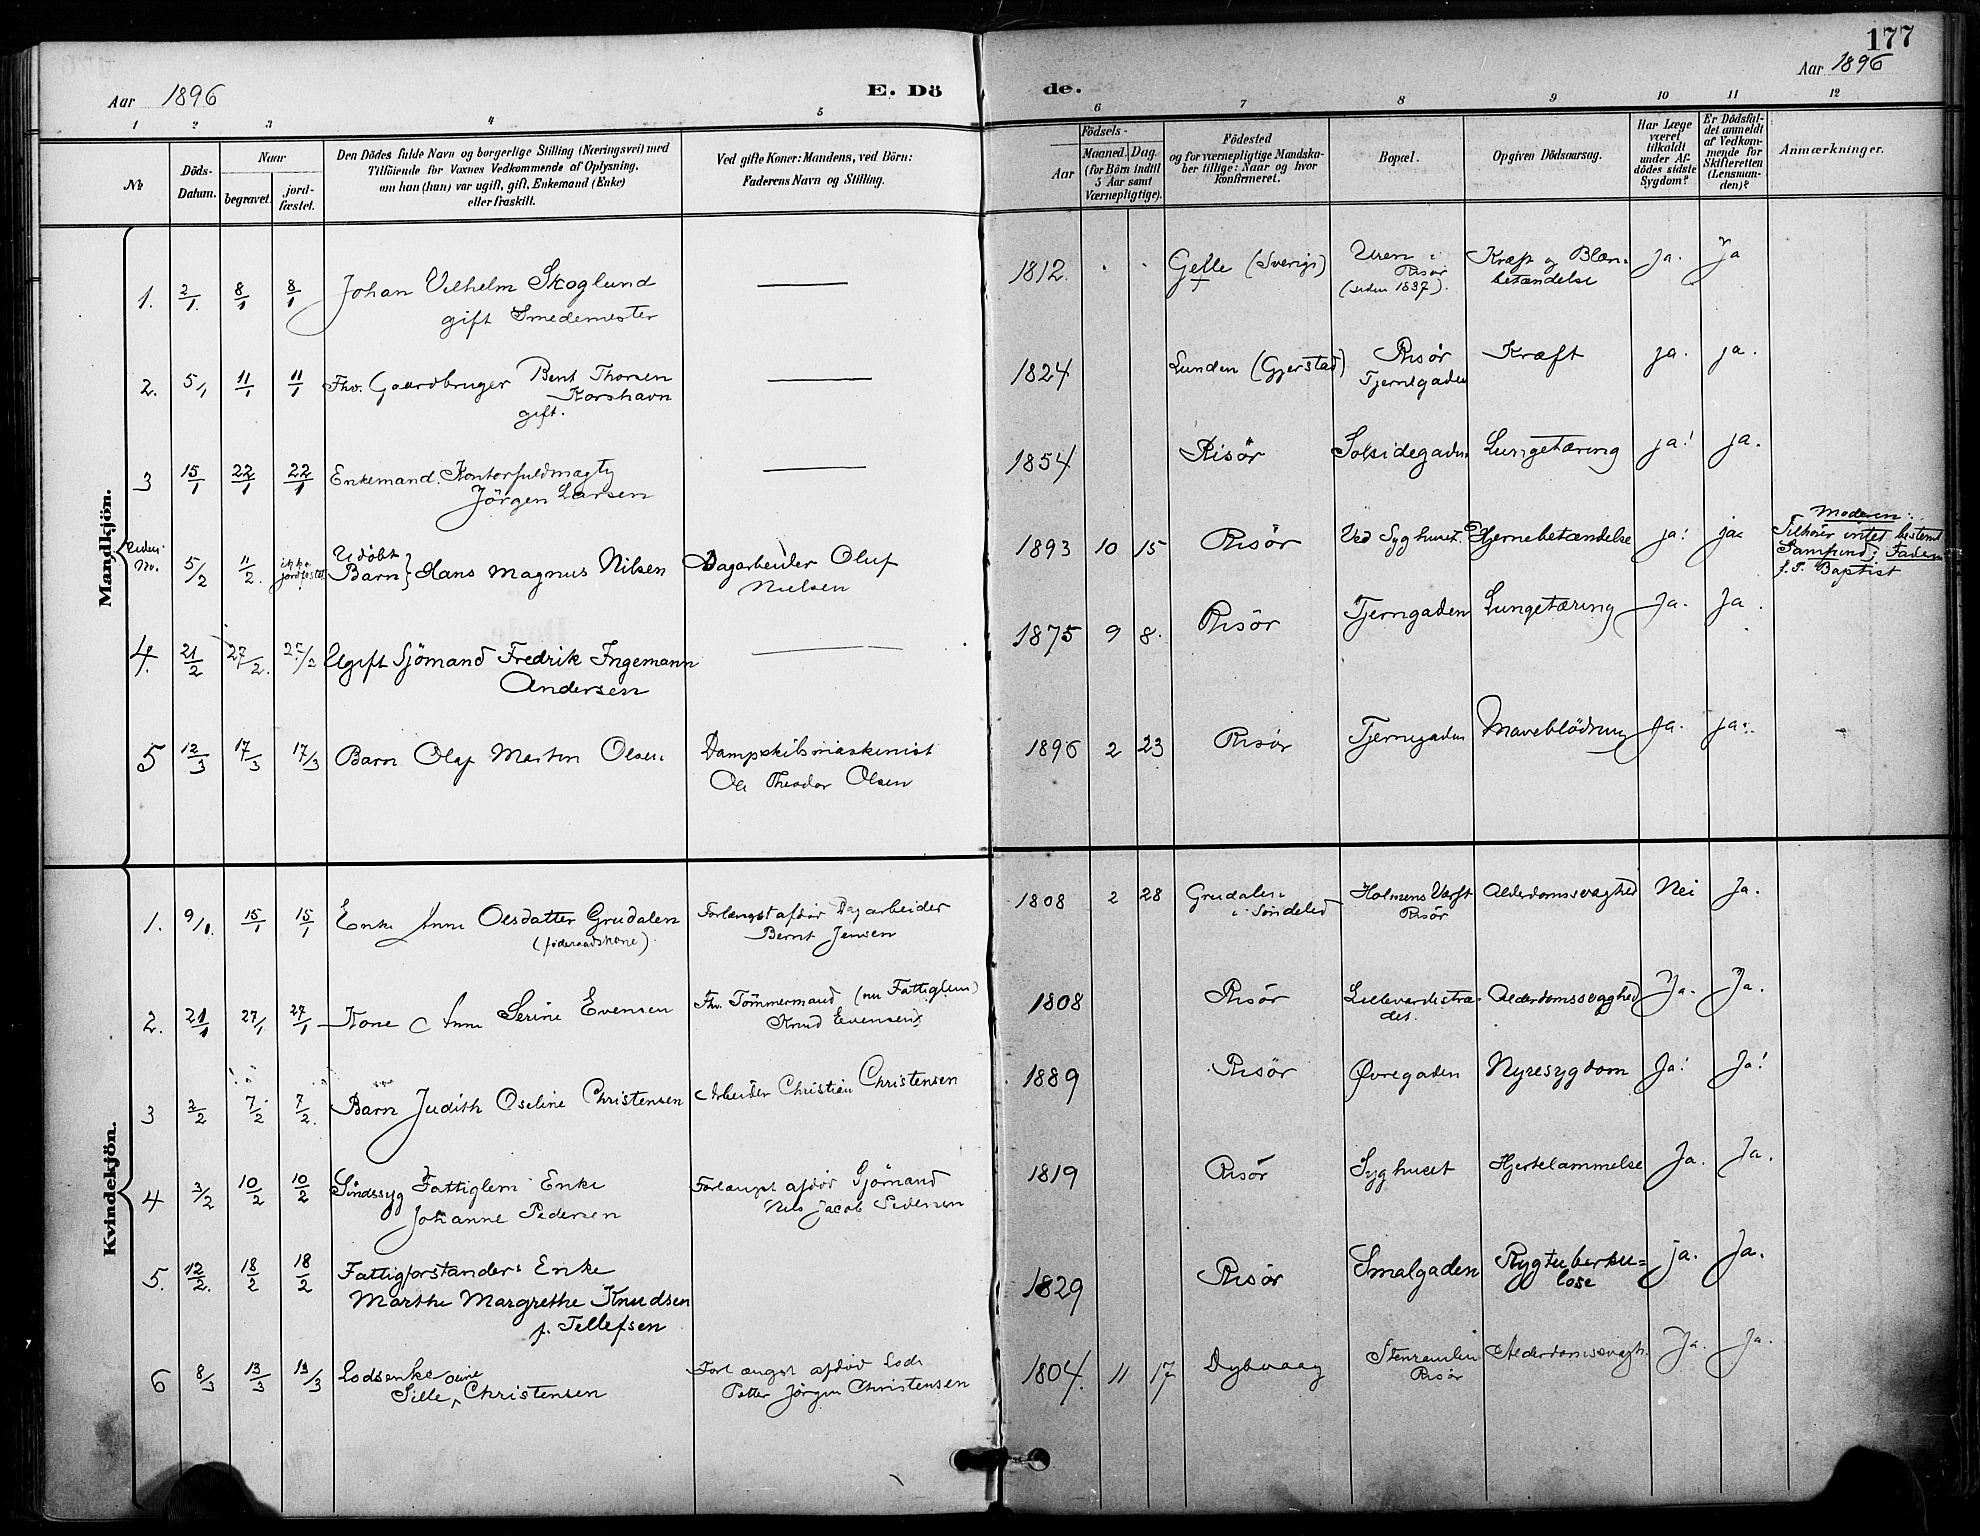 177
Aar 1896
E. Dö
de.
Aar 1896
1 2 3 4 5 6 7 8 9 10 11 12
No
Döds-
Datum.
Naar
begravet.
jord-
fæstet.
Den Dödes fulde Navn og borgerlige Stilling (Næringsvei) med
Tilföiende for Voxnes Vedkommende af Oplysning,
om han (hun) var ugift, gift, Enkemand (Enke)
eller fraskilt.
Ved gifte Koner: Mandens, ved Börn:
Faderens Navn og Stilling.
Födsels-
Aar
Maaned. Dag.
(for Börn indtil
5 Aar samt
Værnepligtige).
Födested
og for værnepligtige Mandska-
ber tillige: Naar og hvor
konfirmeret.
Bopæl.
Opgiven Dödsaarsag.
Har Læge
været
tilkaldt
under Af-
dödes sidste
Sygdom?
Er Dödsfal-
det anmeldt
af Vedkom-
mende for
Skifteretten
(Lensman-
den)?
Anmærkninger.
Mandkjön.
1. 2/1. 8/1 8/1 Johan Vilhelm Skoglund
gift Smedemester
1812. Gefle (Sverige) Uren i
Risør
(siden 1837).
Kræft og Blæn-
betændelse
ja. ja
2. 5/1 11/1 11/1 Fhv. Gaardbruger Bent Thorsen
Korshavn
gift.
1824 Lunden (Gjerstad) Risør
Tjerngaden
Kræft ja. ja.
3 15/1 22/1 22/1 Enkemand. Kontorfuldmægtg
Jörgen Larsen
1854 Risör Solsidegaden Lungetæring ja! ja.
Uden
No. 5/2 11/2. ikke
jordfæstet
Udöbt
Barn} Hans Magnus Nilsen
Dagarbeider Oluf
Nielsen
1893 10 15 Risör Ved Syghuset. Hjernebetændelse ja! ja
Moderen
Tilhörer intet bestemt
Samfund; Faderen
f.T. Baptist
4. 21/2 27/2. 27/2 Ugift Sjömand Fredrik Ingemann
Andersen
1875 9 8. Risör Tjerngaden Lungetæring Ja. Ja
5 12/3 17/3 17/3 Barn Olaf Martin Olsen
Dampskibsmaskinist
Ole Theodor Olsen
1896 2 23 Risör Tjerngaden Maveblödning Ja. ja.
Kvindekjön.
1. 9/1. 15/1 15/1 Enke Anne Olsdatter Grudalen
(föderaadskone).
Forlængst afdör Dagarbeider
Bernt Jensen
1808 2 28 Grudalen
i Söndeled
Holmens Værft
Risör
Alderdomssvaghed Nei Ja.
2. 21/1 27/1 27/1 Kone Anne Serine Evensen
Fhv. Tömmermand (nu Fattiglem)
Knud Evensen
1808 Risör Lillevardestræ-
det.
Alderdomssvaghed Ja. Ja.
3 2/2 7/2 7/2. Barn Judith Oseline Christensen
Arbeider Christian Christensen
1889 Risör Øvregaden Nyresygdom Ja! Ja!
4 3/2 10/2 10/2 Sindssyg Fattiglem Enke
Johanne Pedersen
Forlængst afdör Sjömand
Nils Jacob Pedersen
1819 Risör Syghuset Hjertelammelse Ja. Ja.
5. 12/2. 18/2 18/2 Fattigforstanders Enke
Marthe Margrethe Knudsen
f. Tellefsen
1829 Risör Smalgaden Rygtuberku-
lose
ja. Ja.
6 8/3 13/3 13/3 Lodsenke
Sille^oline Christensen
Forlængst afdöd Lods
Petter Jörgen Christensen
1804. 11 17 Dybvaag Stenramlen
Risör
Alderdomssvagh. Ja. Ja.